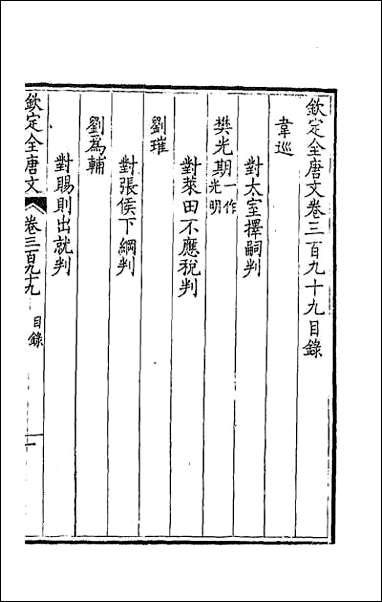 欽定全唐文卷三百九十九目錄
韋巡
對太室擇嗣判
樊光期一作光明
對萊田不應稅判
劉璀
對張侯下綱判
劉為輔
對賜則出就判
欽定全唐文 卷三百九十九 目錄 一